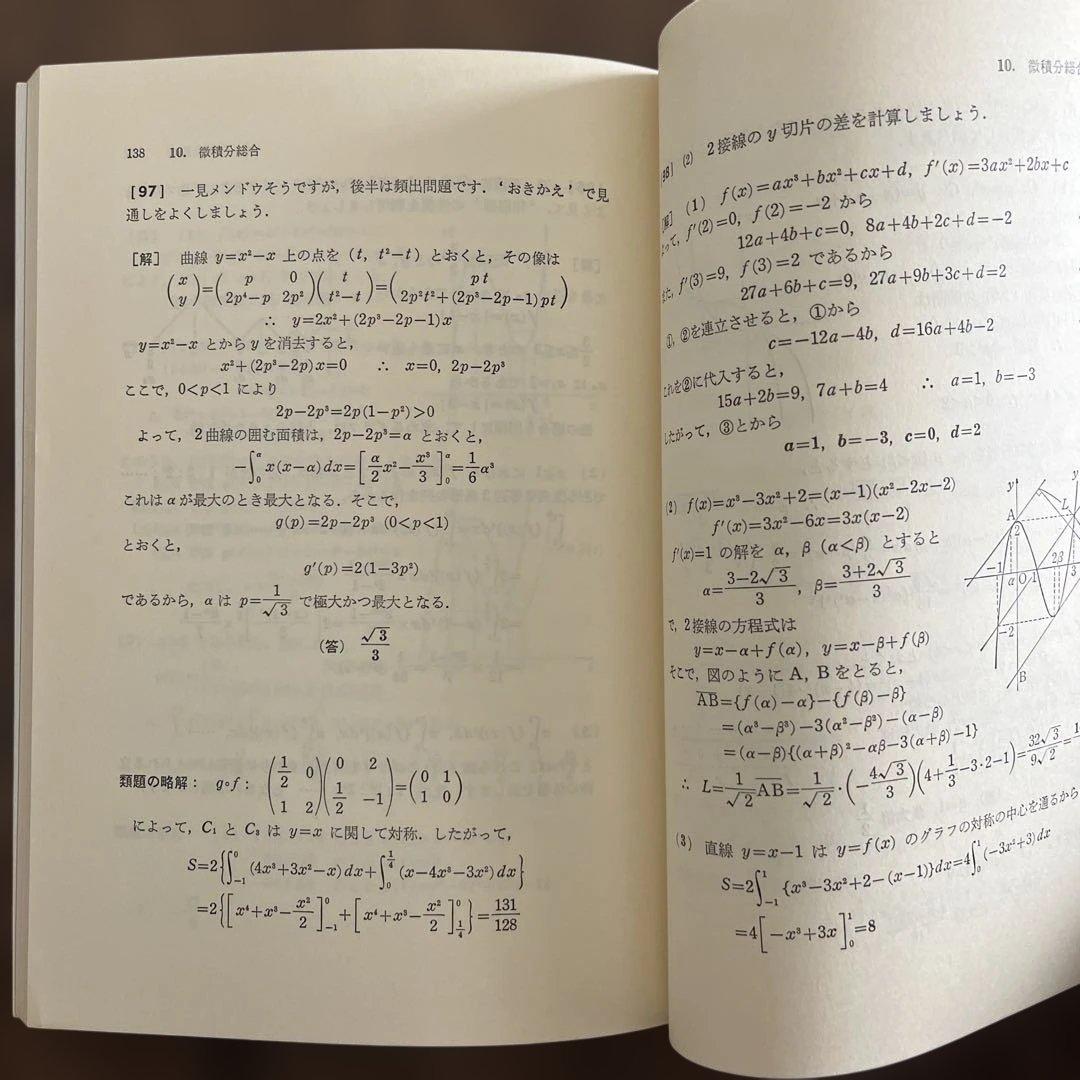 138 10. 微積分総合
[97] 一見メンドウそうですが,後半は頻出問題です.‘おきかえ’で見
通しをよくしましょう.
[解] 曲線 y=x²−x 上の点を (t, t²−t) とおくと,その像は
(x y)=(p 0 2p⁴−p 2p²)(t t²−t)=(pt 2p²t²+(2p³−2p−1)pt)
∴ y=2x²+(2p³−2p−1)x
y=x²−x とから y を消去すると,
x²+(2p³−2p)x=0 ∴ x=0, 2p−2p³
ここで,0<p<1 により
2p−2p³=2p(1−p²)>0
よって,2曲線の囲む面積は,2p−2p³=α とおくと,
−∫₀^α x(x−α)dx=[α/2 x²−x³/3]₀^α=1/6 α³
これは α が最大のとき最大となる.そこで,
g(p)=2p−2p³ (0<p<1)
とおくと,
g′(p)=2(1−3p²)
であるから,α は p=1/√3 で極大かつ最大となる.
(答) √3/3
類題の略解: g∘f: (1/2 0 1 2)(0 2 1/2 −1)=(0 1 1 0)
によって,C₁ と C₃ は y=x に関して対称.したがって,
S=2{∫₋₁⁰(4x³+3x²−x)dx+∫₀^{1/4}(x−4x³−3x²)dx}
=2{[x⁴+x³−x²/2]₋₁⁰+[x⁴+x³−x²/2]_{1/4}⁰}=131/128
10. 微積分総合
98] (2) 2接線の y 切片の差を計算しましょう.
[解] (1) f(x)=ax³+bx²+cx+d, f′(x)=3ax²+2bx+c
よって,f′(2)=0, f(2)=−2 から
12a+4b+c=0, 8a+4b+2c+d=−2
また,f′(3)=9, f(3)=2 であるから
27a+6b+c=9, 27a+9b+3c+d=2
①,②を連立させると,①から
c=−12a−4b, d=16a+4b−2
これを②に代入すると,
15a+2b=9, 7a+b=4 ∴ a=1, b=−3
したがって,③とから
a=1, b=−3, c=0, d=2
(2) f(x)=x³−3x²+2=(x−1)(x²−2x−2)
f′(x)=3x²−6x=3x(x−2)
f′(x)=1 の解を α, β (α<β) とすると
α=3−2√3/3, β=3+2√3/3
で,2接線の方程式は
y=x−α+f(α), y=x−β+f(β)
そこで,図のように A, B をとると,
AB={f(α)−α}−{f(β)−β}
=(α³−β³)−3(α²−β²)−(α−β)
=(α−β){(α+β)²−αβ−3(α+β)−1}
∴ L=1/√2 AB=1/√2・(−4√3/3)(4+1/3−3・2−1)=32√3/9√2=
(3) 直線 y=x−1 は y=f(x) のグラフの対称の中心を通るから
S=2∫₋₁¹{x³−3x²+2−(x−1)}dx=4∫₀¹(−3x²+3)dx
=4[−x³+3x]₀¹=8
y
A
2
L
−1
α
O
1
2
β
3
−2
B